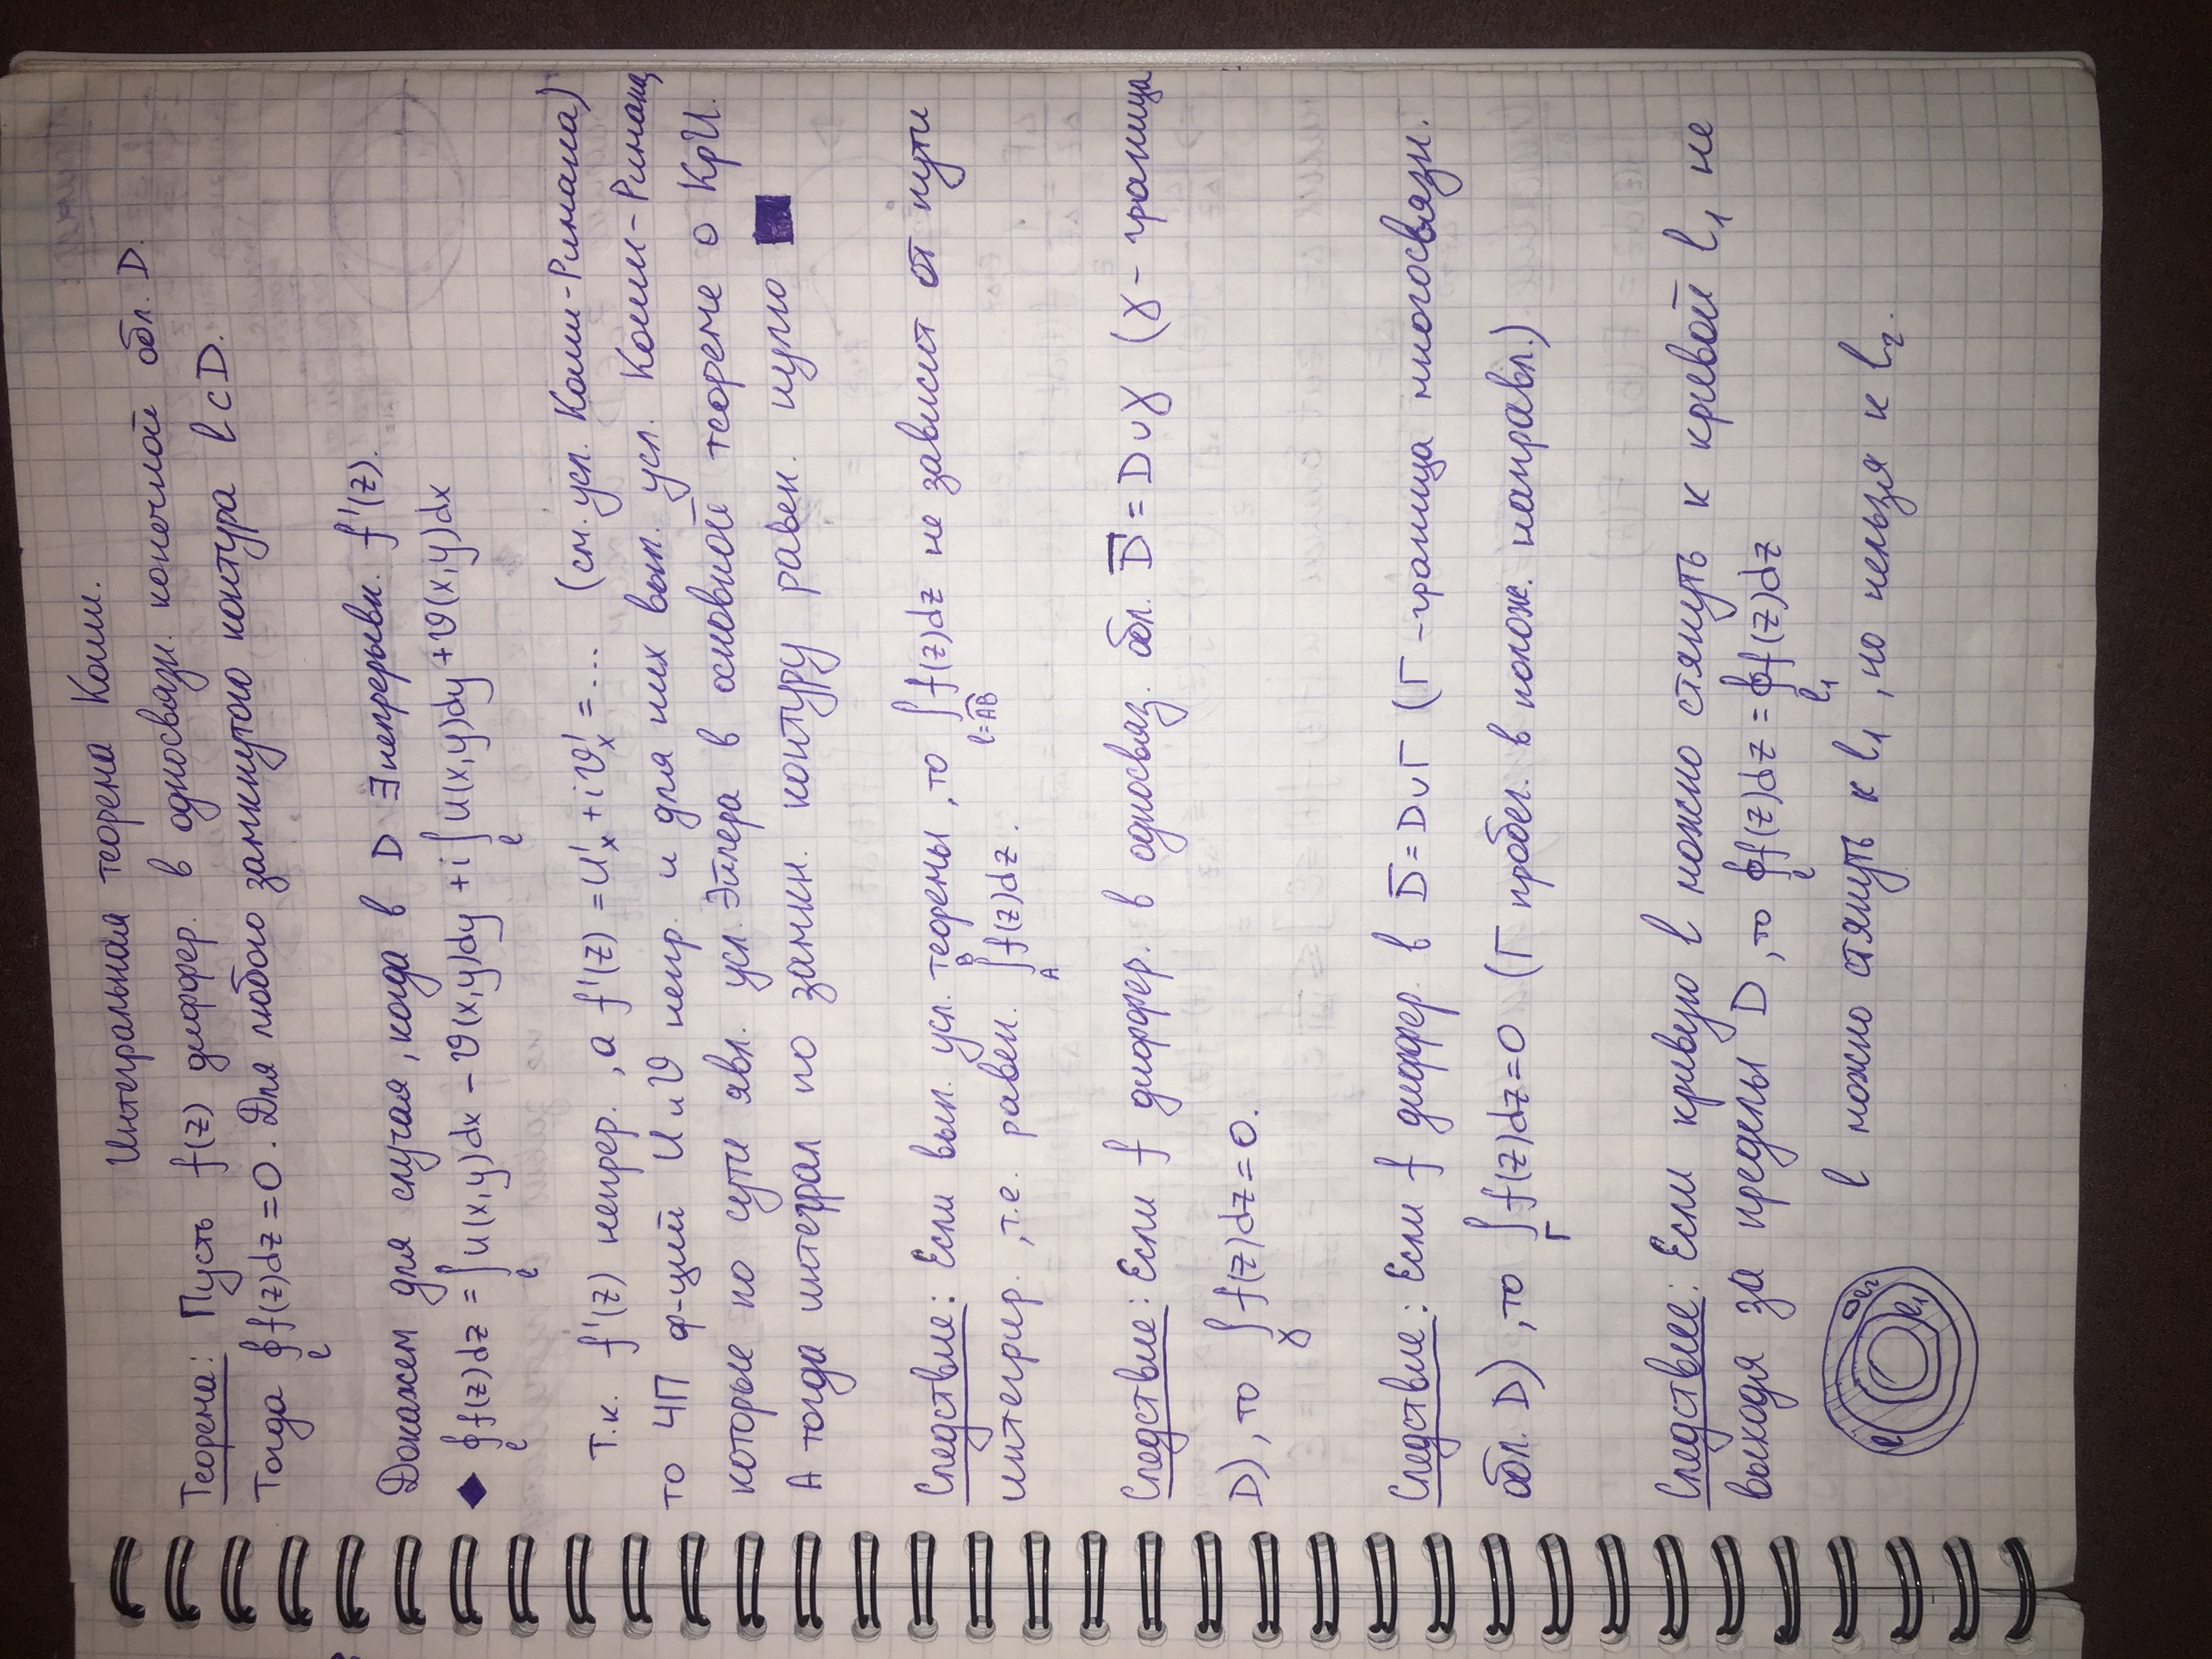 Интегральная теорема Коши.
Теорема: Пусть f(z) диффер. в односвязн. конечной обл. D.
Тогда ∮_l f(z)dz = 0. Для любого замкнутого контура l ⊂ D.
Докажем для случая, когда в D ∃ непрерывн. f'(z).
◆ ∮_l f(z)dz = ∫_l u(x,y)dx − ϑ(x,y)dy + i ∫_l u(x,y)dy + ϑ(x,y)dx
Т.к. f'(z) непрер., а f'(z) = u'_x + iϑ'_x = ... (см. усл. Коши-Римана)
то ЧП ф-ций U и ϑ непр. и для них вып. усл. Коши-Римана,
которые по сути явл. усл. Эйлера в основной теореме о КрИ.
А тогда интеграл по замкн. контуру равен. нулю ■
Следствие: Если вып. усл. теоремы, то ∫_{l=AB} f(z)dz не зависит от пути
интегрир., т.е. равен. ∫_A^B f(z)dz.
Следствие: Если f диффер. в односвяз. обл. D̅ = D ∪ γ (γ - граница
D), то ∫_γ f(z)dz = 0.
Следствие: Если f диффер. в D̅ = D ∪ Г (Г - граница многосвязн.
обл. D), то ∫_Г f(z)dz = 0 (Г пробег. в полож. направл.)
Следствие: Если кривую l можно стянуть к кривой l₁ не
выходя за пределы D, то ∮_l f(z)dz = ∮_{l₁} f(z)dz
l l₁ l₂
l можно стянуть к l₁, но нельзя к l₂.